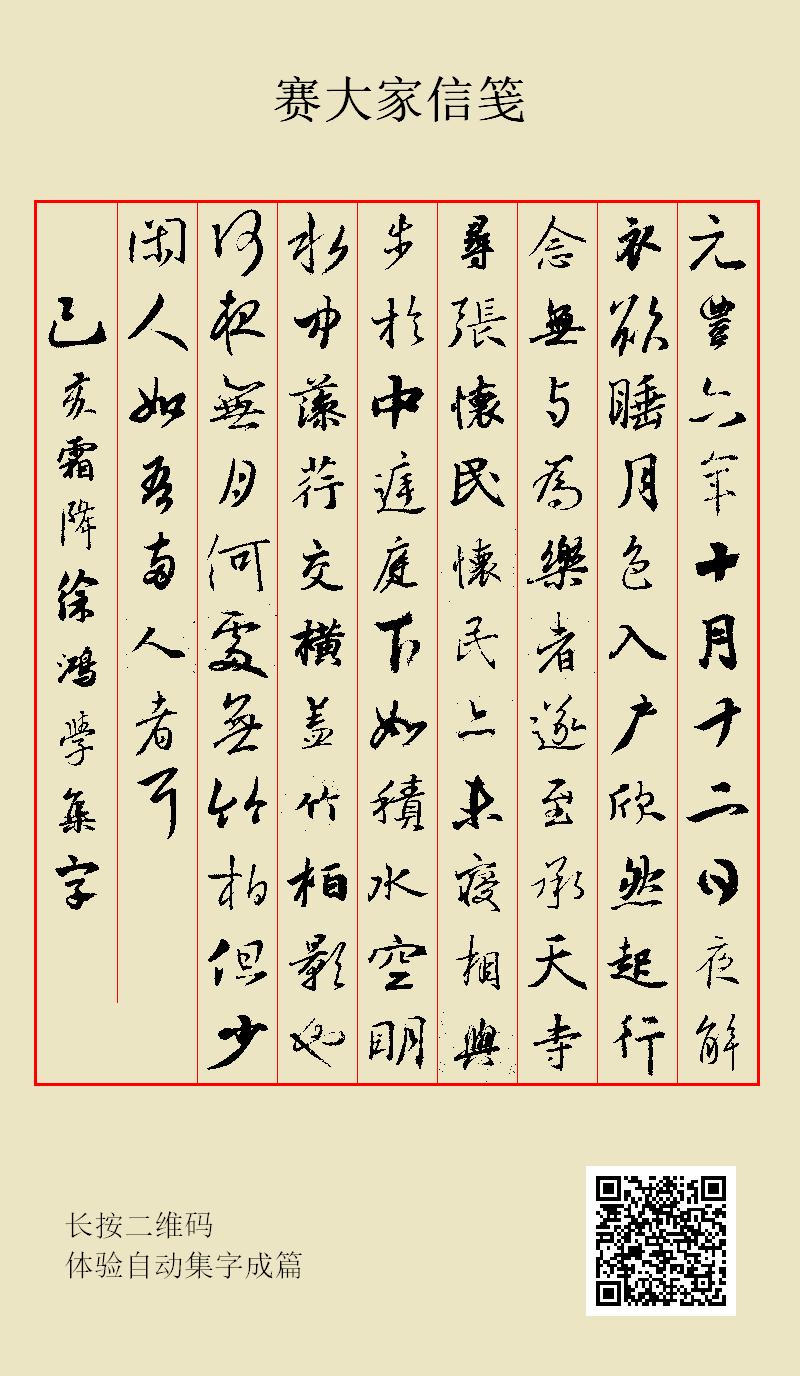 赛大家信笺
元豐六年十月十二日夜解
衣欲睡月色入户欣然起行
念無与為樂者遂至承天寺
尋張懷民懷民亦未寢相與
步於中庭庭下如積水空明
水中藻荇交橫蓋竹柏影也
何夜無月何處無竹柏但少
閑人如吾两人者耳
己亥霜降徐鴻學集字
长按二维码
体验自动集字成篇